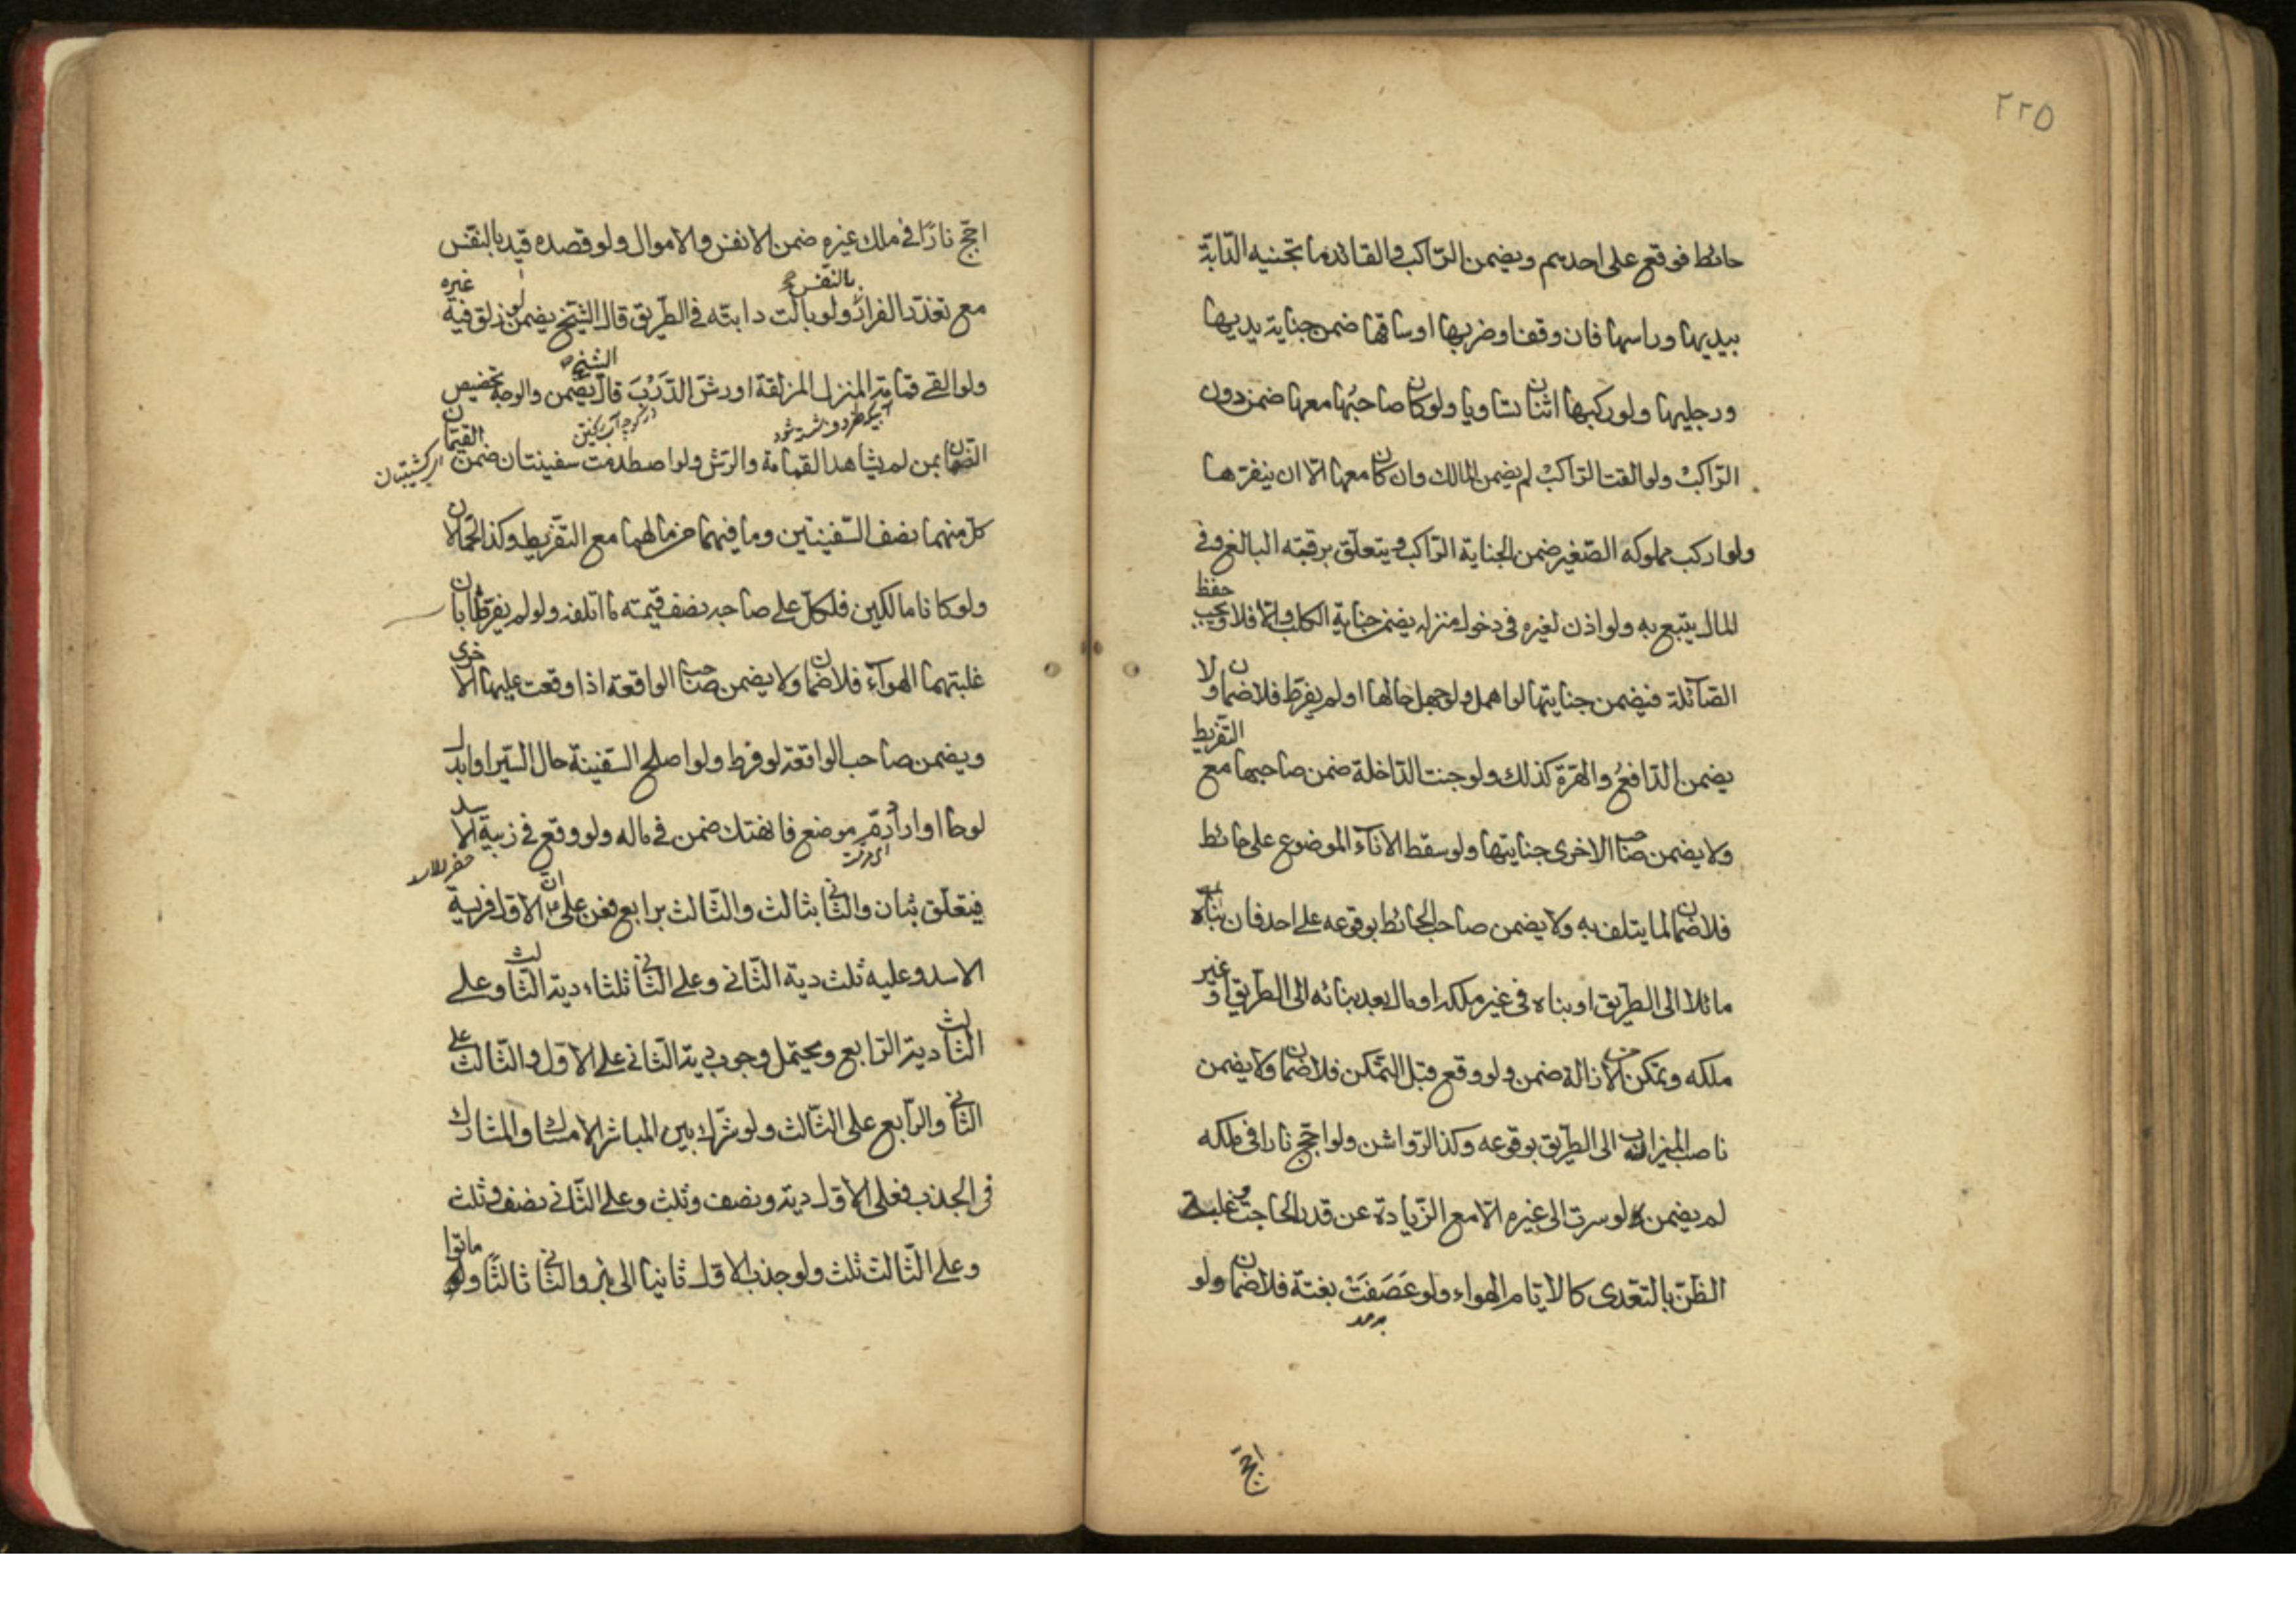 ٢٢٥
حائط فوقع على احدهم ويضمن الراكب والقائد ما تجنيه الدّابّة
بيديها وراسها فان وقفا وضربها او ساقها ضمن جناية يديها
ورجليها ولو ركبها اثنان تساويا ولو كان صاحبُها معها ضمن دون
الرّاكب ولو القت الرّاكب لم يضمن المالك وان كان معها الّا ان ينفرها
ولو اركب مملوكه الصّغير ضمن الجناية الرّاكب ويتعلّق برقبته البالغ وفى
المال يتبع به ولو اذن لغيره فى دخول منزله يضمن جناية الكلب والّا فلا ويجب حفظ
الصّائلة فيضمن جنايتها لو اهمل ولو جهل حالها او لم يفرّط فلا ضمان ولا
يضمن الدّافع والهرّة كذلك ولو جنت الدّاخلة ضمن صاحبها مع التّفريط
ولا يضمن صاحب الاخرى جنايتها ولو سقط الاناء الموضوع على حائط
فلا ضمان لما يتلف به ولا يضمن صاحب الحائط بوقوعه على احد فان بناه
مائلا الى الطريق او بناه فى غير ملكه او مال بعد بنائه الى الطريق او غير
ملكه وتمكن من الازالة ضمن ولو وقع قبل التّمكن فلا ضمان ولا يضمن
ناصب الميزاب الى الطريق بوقوعه وكذا الرّواشن ولو اجّج نارا فى ملكه
لم يضمن لو سرت الى غيره الّا مع الزّيادة عن قدر الحاجة وغلبة
الظنّ بالتعّدى كالايّام الهواء ولو عَصَفَتْ بغتة فلا ضمان ولو
اجّج
اجّج نارًا فى ملك غيره ضمن الانفس والاموال ولو قصده قيد بالنفس
بالنفس
مع تعذّر الفرار ولو بالت دابته فى الطّريق قال الشيخ يضمن لو زلق فيه غيره
ولو القى قمامة المنزل المزلقة او رشّ الدَّرْبَ قال الشيخ يضمن والوجه تخصيص
الضمان بمن لم يشاهد القمامة والرّش ولو اصطدمت سفينتان ضمن القيّمان
كلّ منهما نصف السّفينتين وما فيهما من مالهما مع التفريط وكذا الحمّالان
ولو كانا مالكين فلكلّ على صاحبه نصف قيمة ما اتلفه ولو لم يفرّطا بان
غلبتهما الهواء فلا ضمان ولا يضمن صاحب الواقعة اذا وقعت عليها الاخرى
ويضمن صاحب الواقعة لو فرط ولو اصلح السفينة حال السّير او ابدل
لوحا او اراد رمّ موضع فانهتك ضمن فى ماله ولو وقع فى زبية الاسد
فتعلّق بثان والثّانى بثالث والثّالث برابع فعن على ان الاول فريسة
الاسد وعليه ثلث دية الثّانى وعلى الثّانى ثلثا دية الثّالث وعلى
الثّالث دية الرّابع ويحتمل وجوب دية الثّانى على الاوّل والثّالث على
الثّانى والرّابع على الثّالث ولو شرّك بين المباشر الامساك والمشارك
فى الجذب فعلى الاوّل دية ونصف وثلث وعلى الثّانى نصف وثلث
وعلى الثّالث ثلث ولو جذب الاوّل ثانيا الى بئر والثّانى ثالثا وماتوا